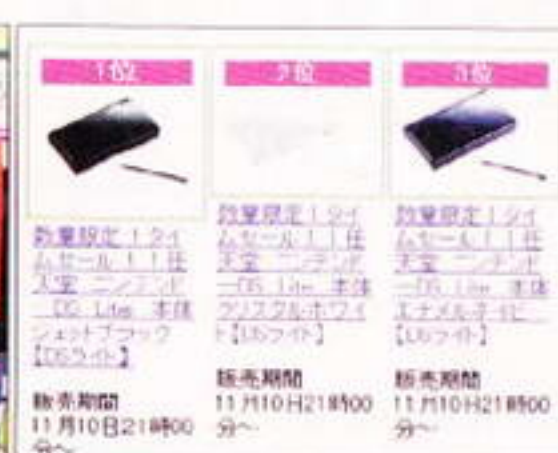 1位
数量限定！タイ
ムセール！！任
天堂 ニンテンド
ーDS Lite 本体
ジェットブラック
【DSライト】
販売期間
11月10日21時00
分～
2位
数量限定！タイ
ムセール！！任
天堂 ニンテンド
ーDS Lite 本体
クリスタルホワイ
ト【DSライト】
販売期間
11月10日21時00
分～
3位
数量限定！タイ
ムセール！！任
天堂 ニンテンド
ーDS Lite 本体
エナメルネイビー
【DSライト】
販売期間
11月10日21時00
分～